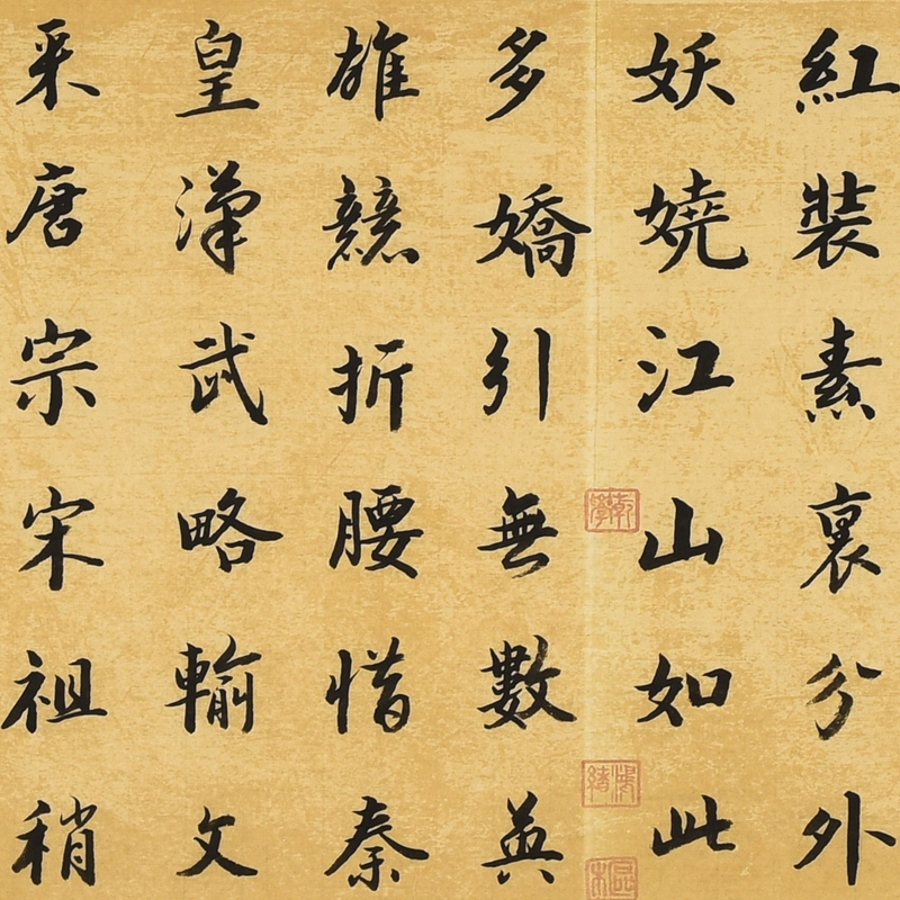 紅裝素裹分外
妖嬈江山如此
多嬌引無數英
雄競折腰惜秦
皇漢武略輸文
采唐宗宋祖稍